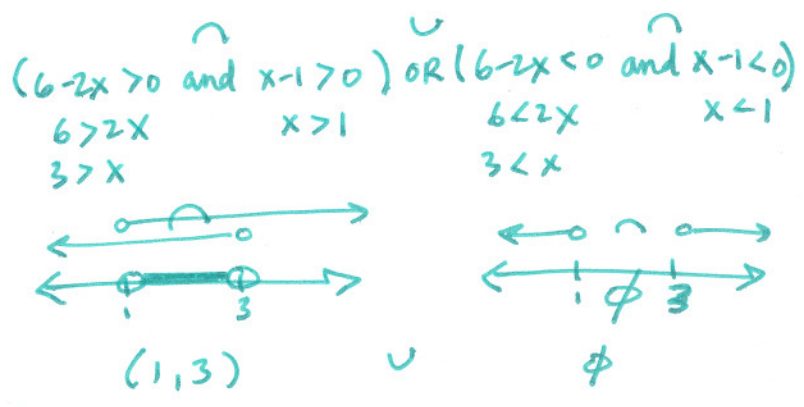 ∩ ∪ ∩
(6-2x>0 and x-1>0) OR (6-2x<0 and x-1<0)
6>2x x>1 6<2x x<1
3>x 3<x
∩ ∩
1 3 1 ϕ 3
(1,3) ∪ ϕ